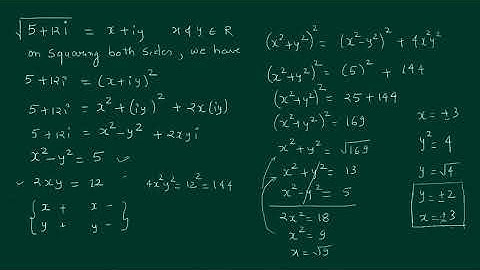 √5+12i = x+iy   x & y ∈ R
on squaring both sides, we have
5+12i = (x+iy)²
5+12i = x²+(iy)² + 2x(iy)
5+12i = x²-y² + 2xyi
x²-y² = 5 ✓
✓ 2xy = 12   4x²y² = 12² = 144
{ x +   x -
{ y +   y -
(x²+y²)² = (x²-y²)² + 4x²y²
(x²+y²)² = (5)² + 144
(x²+y²)² = 25+144
(x²+y²)² = 169
x²+y² = √169
x²+y² = 13
x²-y² = 5
2x² = 18
x² = 9
x = √9
x = ±3
y² = 4
y = √4
y = ±2
x = ±3